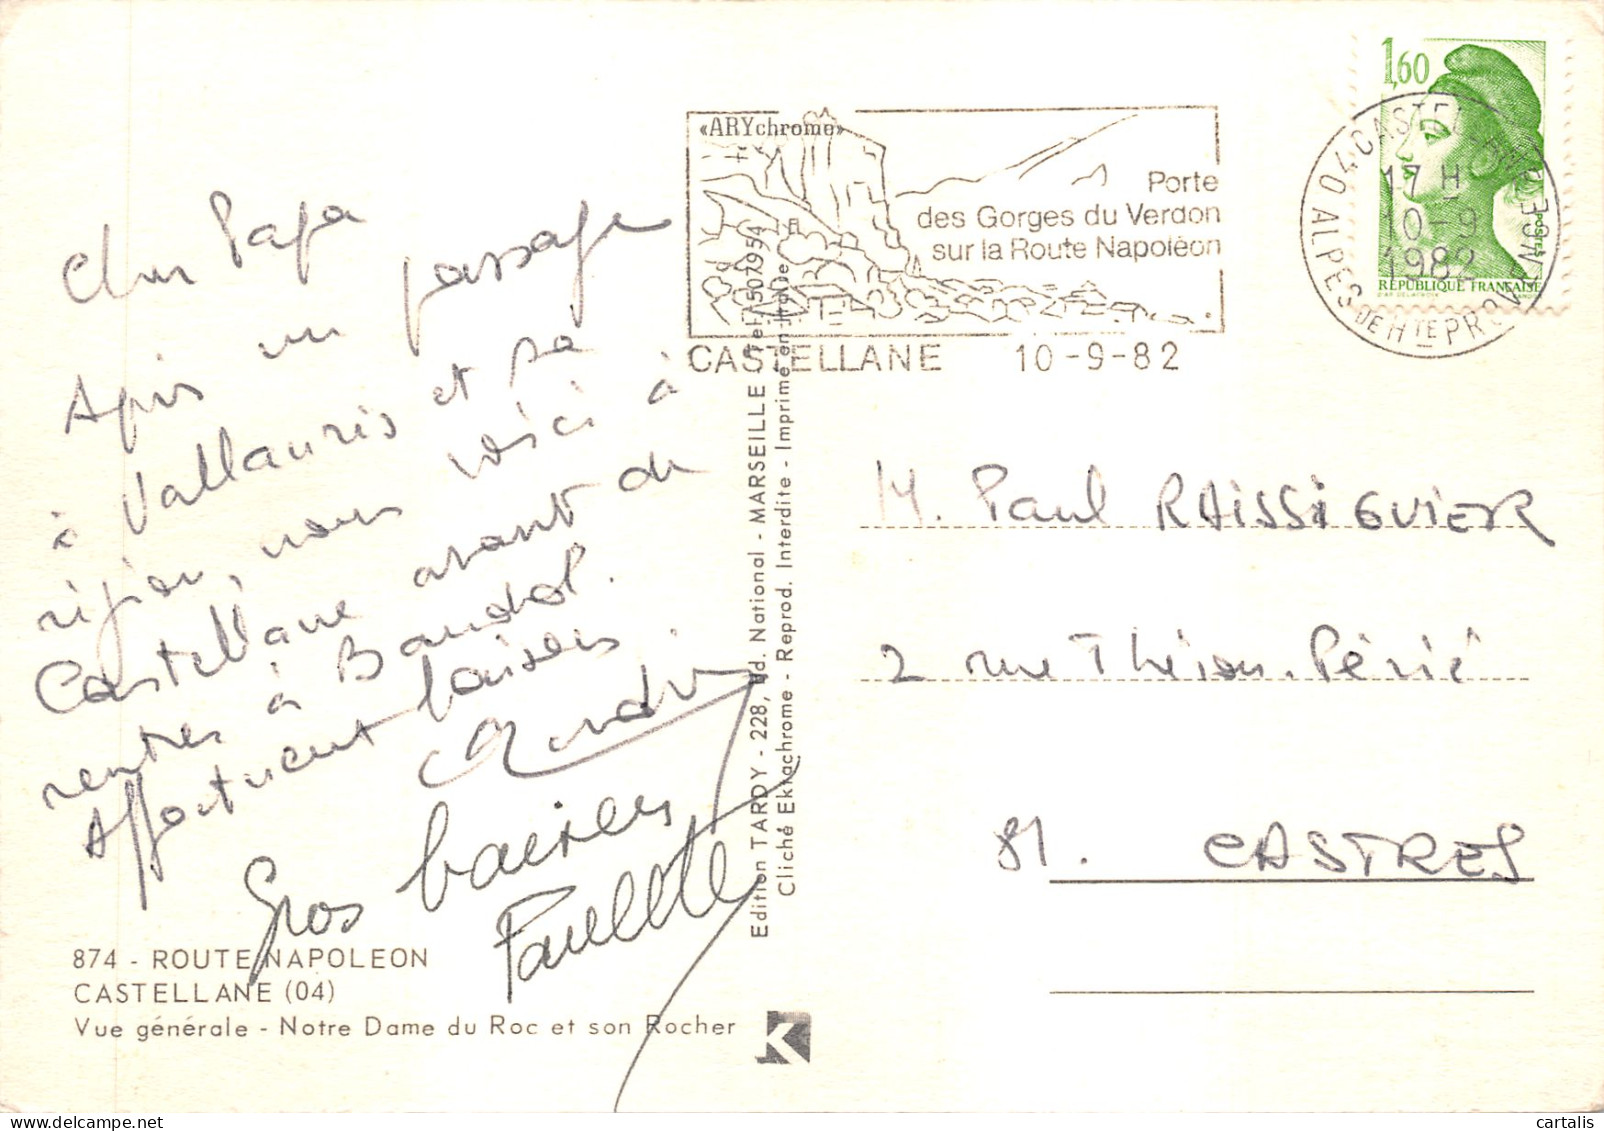 Cher Papa
Après un passage
à Vallauris et sa
région, nous voici à
Castellane avant de
rentrer à Bandol.
Affectueux baisers.
André
Gros baisers
Paulette
874 - ROUTE NAPOLEON
CASTELLANE (04)
Vue générale - Notre Dame du Roc et son Rocher
Edition TARDY - 228, Bd. National - MARSEILLE - Tel 50 79 54
Cliché Ektachrome - Reprod. Interdite - Imprimé en Italie
K
«ARYchrome»
Porte
des Gorges du Verdon
sur la Route Napoléon
CASTELLANE 10-9-82
1,60
POSTES
RÉPUBLIQUE FRANÇAISE
04 CASTELLANE
17 H
10-9
1982
ALPES DE HTE PROVENCE
M. Paul RAISSIGUIER
2 rue Théron-Périé
81. CASTRES
cartalis